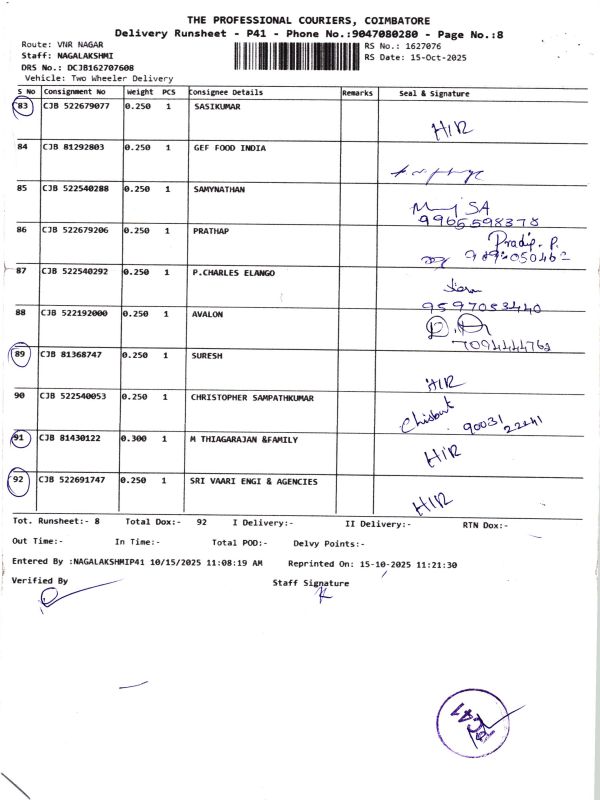 THE PROFESSIONAL COURIERS, COIMBATORE
Delivery Runsheet - P41 - Phone No.:9047080280 - Page No.:8
Route: VNR NAGAR
Staff: NAGALAKSHMI
DRS No.: DCJB162707608
Vehicle: Two Wheeler Delivery
RS No.: 1627076
RS Date: 15-Oct-2025
S No Consignment No Weight PCS Consignee Details Remarks Seal & Signature
83 CJB 522679077 0.250 1 SASIKUMAR HIR
84 CJB 81292803 0.250 1 GEF FOOD INDIA
85 CJB 522540288 0.250 1 SAMYNATHAN SA
9965598378
86 CJB 522679206 0.250 1 PRATHAP Pradip. P.
87 CJB 522540292 0.250 1 P.CHARLES ELANGO
9597053440
88 CJB 522192000 0.250 1 AVALON
89 CJB 81368747 0.250 1 SURESH HIR
90 CJB 522540053 0.250 1 CHRISTOPHER SAMPATHKUMAR 90031 22441
91 CJB 81430122 0.300 1 M THIAGARAJAN &FAMILY HIR
92 CJB 522691747 0.250 1 SRI VAARI ENGI & AGENCIES HIR
Tot. Runsheet:- 8 Total Dox:- 92 I Delivery:- II Delivery:- RTN Dox:-
Out Time:- In Time:- Total POD:- Delvy Points:-
Entered By :NAGALAKSHMIP41 10/15/2025 11:08:19 AM Reprinted On: 15-10-2025 11:21:30
Verified By Staff Signature